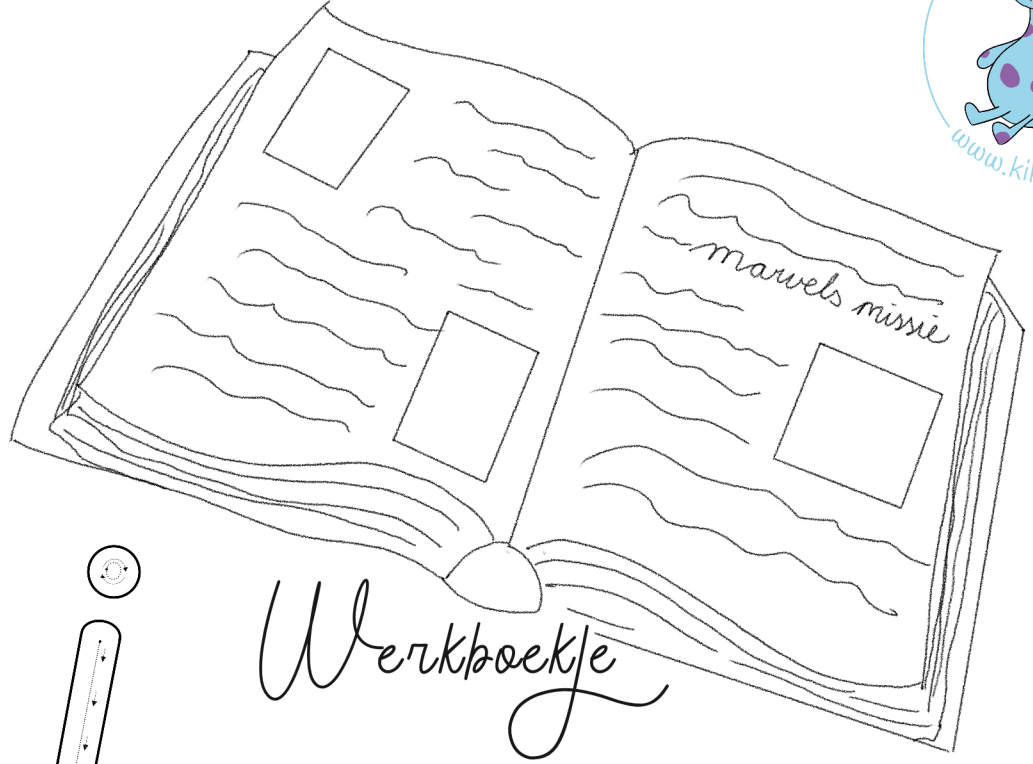 www.kik
marvels missie
i
Werkboekje